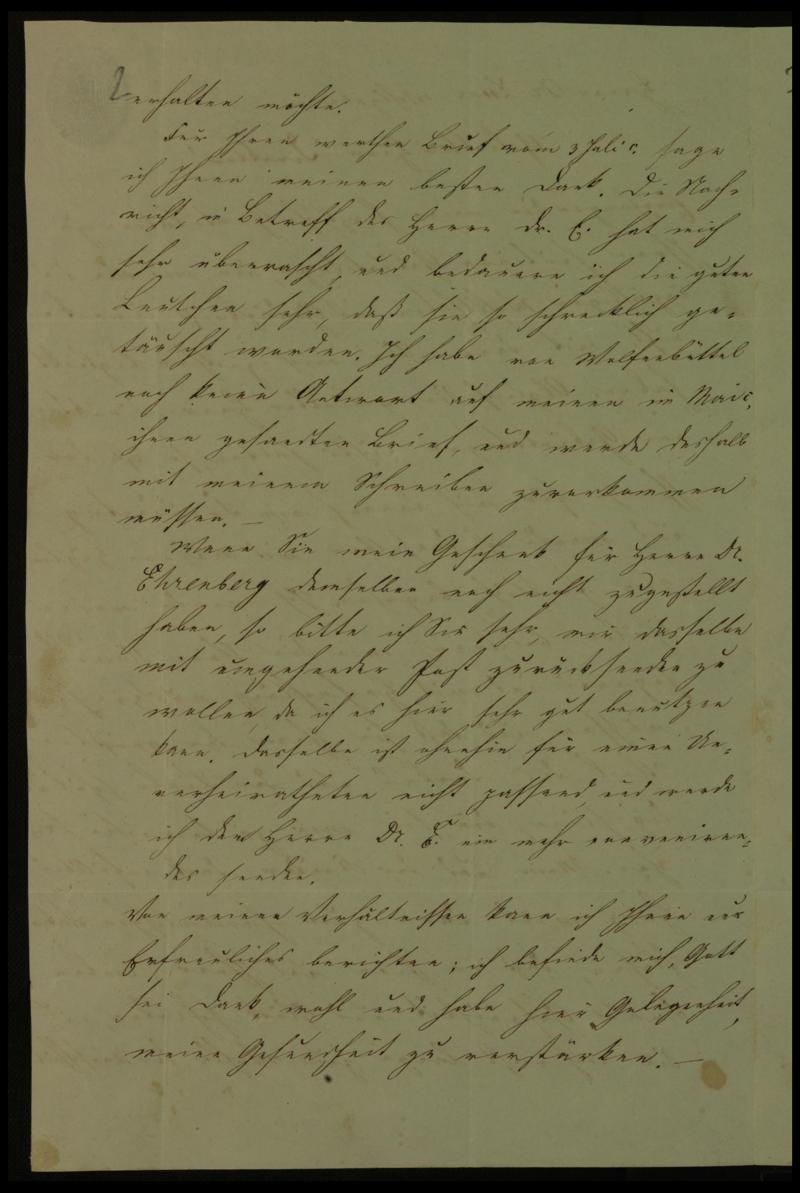 2
erhalten möchte.
Für Ihren werthen Brief vom 3 Juli c. sage
ich Ihnen meinen besten Dank. Die Nach-
richt, in Betreff des Herrn Dr. E. hat mich
sehr überrascht, und bedauere ich die guten
Leutchen sehr, daß sie so schrecklich ge-
täuscht worden. Ich habe von Wolfenbüttel
noch keine Antwort auf meinen im Mai c.
ihnen gesandten Brief, und werde deshalb
mit meinem Schreiben zuvorkommen
müssen. —
Wenn Sie mein Geschenk für Herrn Dr.
Ehrenberg demselben noch nicht zugestellt
haben, so bitte ich Sie sehr, mir dasselbe
mit umgehender Post zurücksenden zu
wollen, da ich es hier sehr gut benutzen
kann. Dasselbe ist ohnehin für einen Un-
verheiratheten nicht passend, und werde
ich dem Herrn Dr. E. ein mehr conveniren-
des senden.
Von meinen Verhältnissen kann ich Ihnen nur
Erfreuliches berichten; ich befinde mich, Gott
sei Dank, wohl und habe hier Gelegenheit,
meine Gesundheit zu verstärken. —